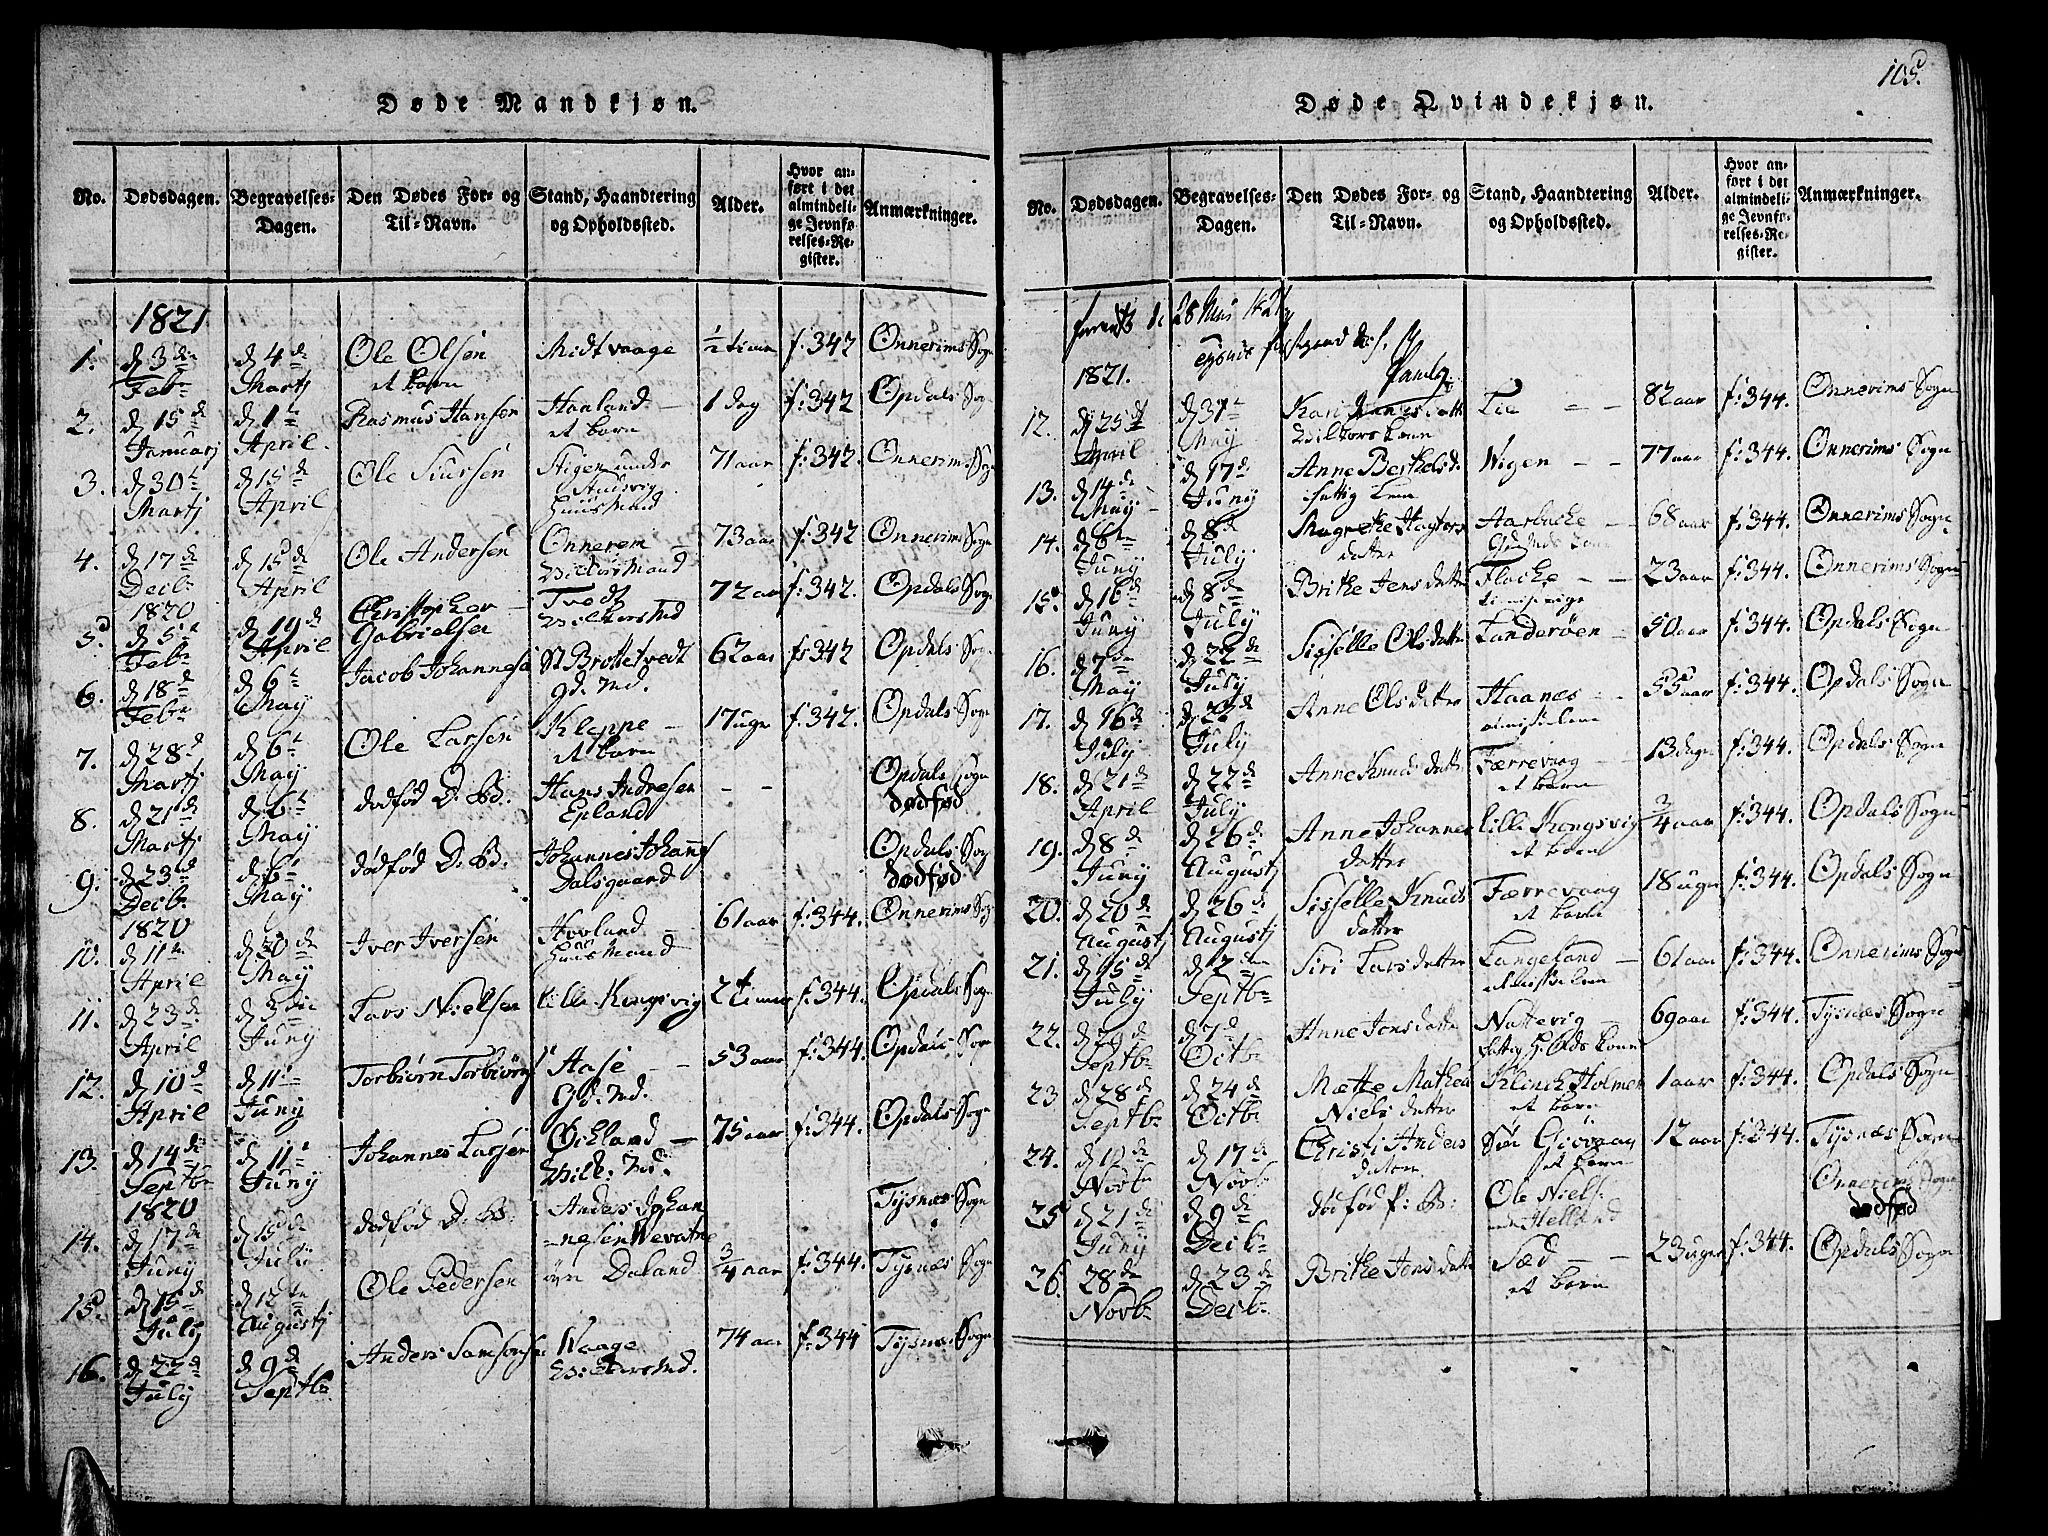 105.
Døde Mandkjøn.
No. Dødsdagen. Begravelses-Dagen. Den Dødes For- og Til-Navn. Stand, Haandtering og Opholdssted. Alder. Hvor anført i det almindelige Jevnførelses-Register. Anmærkninger.
1821
1. d 3die Febr. d 4de Martj Ole Olsen et barn Midtvaage ½ time f: 342 Onnerims Sogn
2. d 15de Januarj d 1te April Rasmus Hansen Haaland et barn 1 dag f: 342 Opdals Sogn
3. d 30te Martj d 15de April Ole Siursen Stigen under Andsvig Huusmand 71 aar f: 342. Onnerims Sogn
4. d 17de Decb. 1820 d 15de April Ole Andersen Onnerem Wilkorsmand 73 aar f: 342 Onnerims Sogn
5. d 5te Febr d 19de April Christopher Gabrielsen Tvedt Wilkorsmd 72 aar f: 342. Opdals Sogn
6. d 18de Febr d 6te May Jacob Johannesen St Brottetvedt gd. Md. 62 aar f: 342 Opdals Sogn
7. d 28de Martj d 6te May Ole Larsen Kleppe et barn 17 uger f: 342. Opdals Sogn
8. d 21de Martj d 6te May dødfød D. B. Hans Andresen Epland - - Opdals Sogn dødfød
9. d 23de Decb. 1820 d 6te May dødfød D. B. Johannes Johann Dalsgaard Opdals Sogn dødfød
10. d 11te April d 20de May Iver Iversen Hovland Huusmand 61 aar f: 344. Onnerims Sogn
11. d 23de April d 3die Juny Lars Nielsen lille Kongsvig 2 timer f: 344. Opdals Sogn
12. d 10de April d 11te Juny Torbiørn Torbiørns Aase Gd. Md. 53 aar f: 344. Opdals Sogn
13. d 14de Septbr 1820 d 11te Juny Johannes Larsen Øckland Wilk: Md. 75 aar f: 344. Opdals Sogn
14. d 17de Juny d 15de July dødfød D. B. Anders Johannesen Wevatne Tysnæs Sogn
15. d 15de July d 12te Augustj Ole Pedersen Daland ¾ aar f: 344. Tysnæs Sogn
16. d 22de July d 9de Septbr Anders Samsonsen Waage Wilkorsmd. 74 aar f: 344 Tysnæs Sogn
Døde Qvindekjøn.
No. Dødsdagen. Begravelses-Dagen. Den Dødes For- og Til-Navn. Stand, Haandtering og Opholdssted. Alder. Hvor anført i det almindelige Jevnførelses-Register. Anmærkninger.
1821.
12. d 25de April d 31te May Kari datter Wilkorskone Lie - - 82 aar f: 344. Onnerims Sogn
13. d 14de May d 17de Juny Anne Berthelsd. fattig kone Wigen - - 77 aar f: 344. Onnerims Sogn
14. d 6te Juny d 8de July Magrethe datter Aarbacke 68 aar f: 344. Onnerims Sogn
15. d 16de Juny d 8de July Brithe Jensdatter Flacke - - 23 aar f: 344. Onnerims Sogn
16. d 7de May d 22de July Sisselle Olsdatter Landerøen 50 aar f: 344. Opdals Sogn
17. d 16de July d 22de July Anne Olsdatter Haanes - - 55 aar f: 344. Opdals Sogn
18. d 21de April d 22de July Anne Knudsdatter Færrevaag et barn 13 dage f: 344. Opdals Sogn
19. d 8de Juny d 26de Augustj Anne Johannesdatter lille Kongsvig et barn ¾ aar f: 344. Opdals Sogn
20. d 20de Augustj d 26de Augustj Sisselle Knudsdatter Færrevaag et barn 18 uger f: 344. Opdals Sogn
21. d 15de July d 2den Septbr Siri Larsdatter Langeland 61 aar f: 344. Onnerims Sogn
22. d 29de Septbr d 7de Octbr Anne Jonsdatter Nattevig fattig kone 69 aar f: 344. Tysnæs Sogn
23 d 28de Septbr d 24de Octbr Mætte Mathea Nielsdatter Klinckholmen et barn 1 aar f: 344. Opdals Sogn
24. d 12de Novbr d 17de Novbr Christi Andersdatter Sør Giøvaag et barn 12 aar f: 344. Tysnæs Sogn
25 d 21de Juny d 9de Decbr dødfød P: B: Ole Niels: Helland Onnerims Sogn dødfød
26. 28de Novbr d 23de Decbr Brithe Jonsdatter Sæd et barn 23 uger f: 344. Opdals Sogn